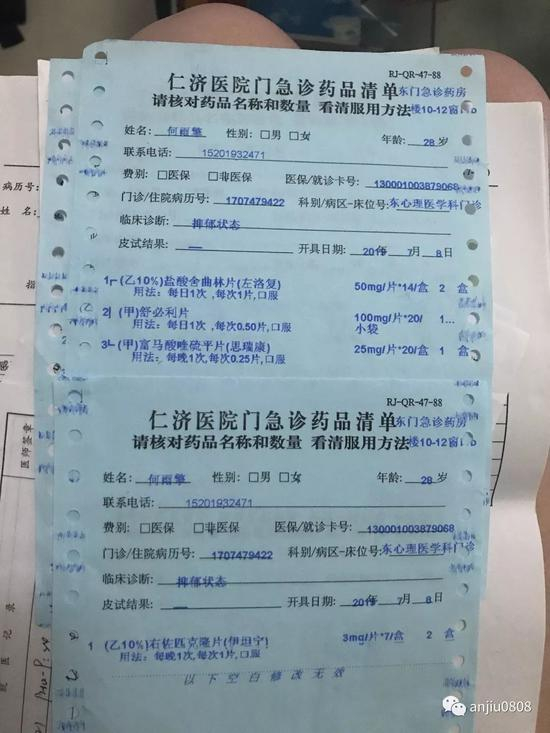 RJ-QR-47-88
仁济医院门急诊药品清单 东门急诊药房
请核对药品名称和数量 看清服用方法 楼10-12窗
姓名: 何雨擎 性别: □男 □女 年龄: 28 岁
联系电话: 15201932471
费别: □医保 □非医保 医保/就诊卡号: 130001003879068
门诊/住院病历号: 1707479422 科别/病区-床位号: 东心理医学科门诊
临床诊断: 抑郁状态
皮试结果: — 开具日期: 2019 年 7 月 8 日
1 (乙10%)盐酸舍曲林片(左洛复) 50mg/片*14/盒 2 盒
用法: 每日1次 , 每次1片, 口服
2 (甲)舒必利片 100mg*20/小袋 1...
用法: 每日1次 , 每次0.50片, 口服
3 (甲)富马酸喹硫平片(思瑞康) 25mg/片*20/盒 1 盒
用法: 每晚1次, 每次0.25片, 口服
RJ-QR-47-88
仁济医院门急诊药品清单 东门急诊药房
请核对药品名称和数量 看清服用方法 楼10-12窗
姓名: 何雨擎 性别: □男 □女 年龄: 28 岁
联系电话: 15201932471
费别: □医保 □非医保 医保/就诊卡号: 130001003879068
门诊/住院病历号: 1707479422 科别/病区-床位号: 东心理医学科门诊
临床诊断: 抑郁状态
皮试结果: — 开具日期: 2019 年 7 月 8 日
1 (乙10%)右佐匹克隆片(伊坦宁) 3mg/片*7/盒 2 盒
用法: 每晚1次, 每次1片, 口服
以下空白修改无效
病历号:
姓名:
医师签章
医记录
anjiu0808